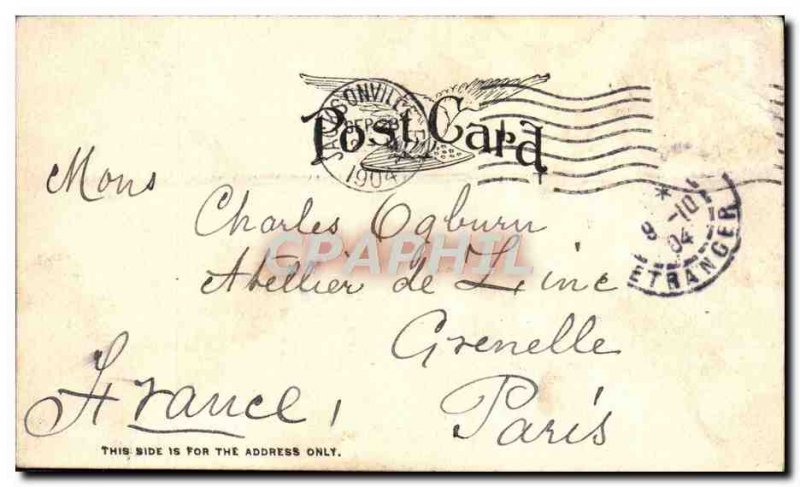 JACKSONVILLE
SEP 28
1904
Post Card
Mons
Charles Ogburn
CPAPHIL
Atellier de Zinc
Grenelle
Paris
France,
9 -10
04
ETRANGER
THIS SIDE IS FOR THE ADDRESS ONLY.